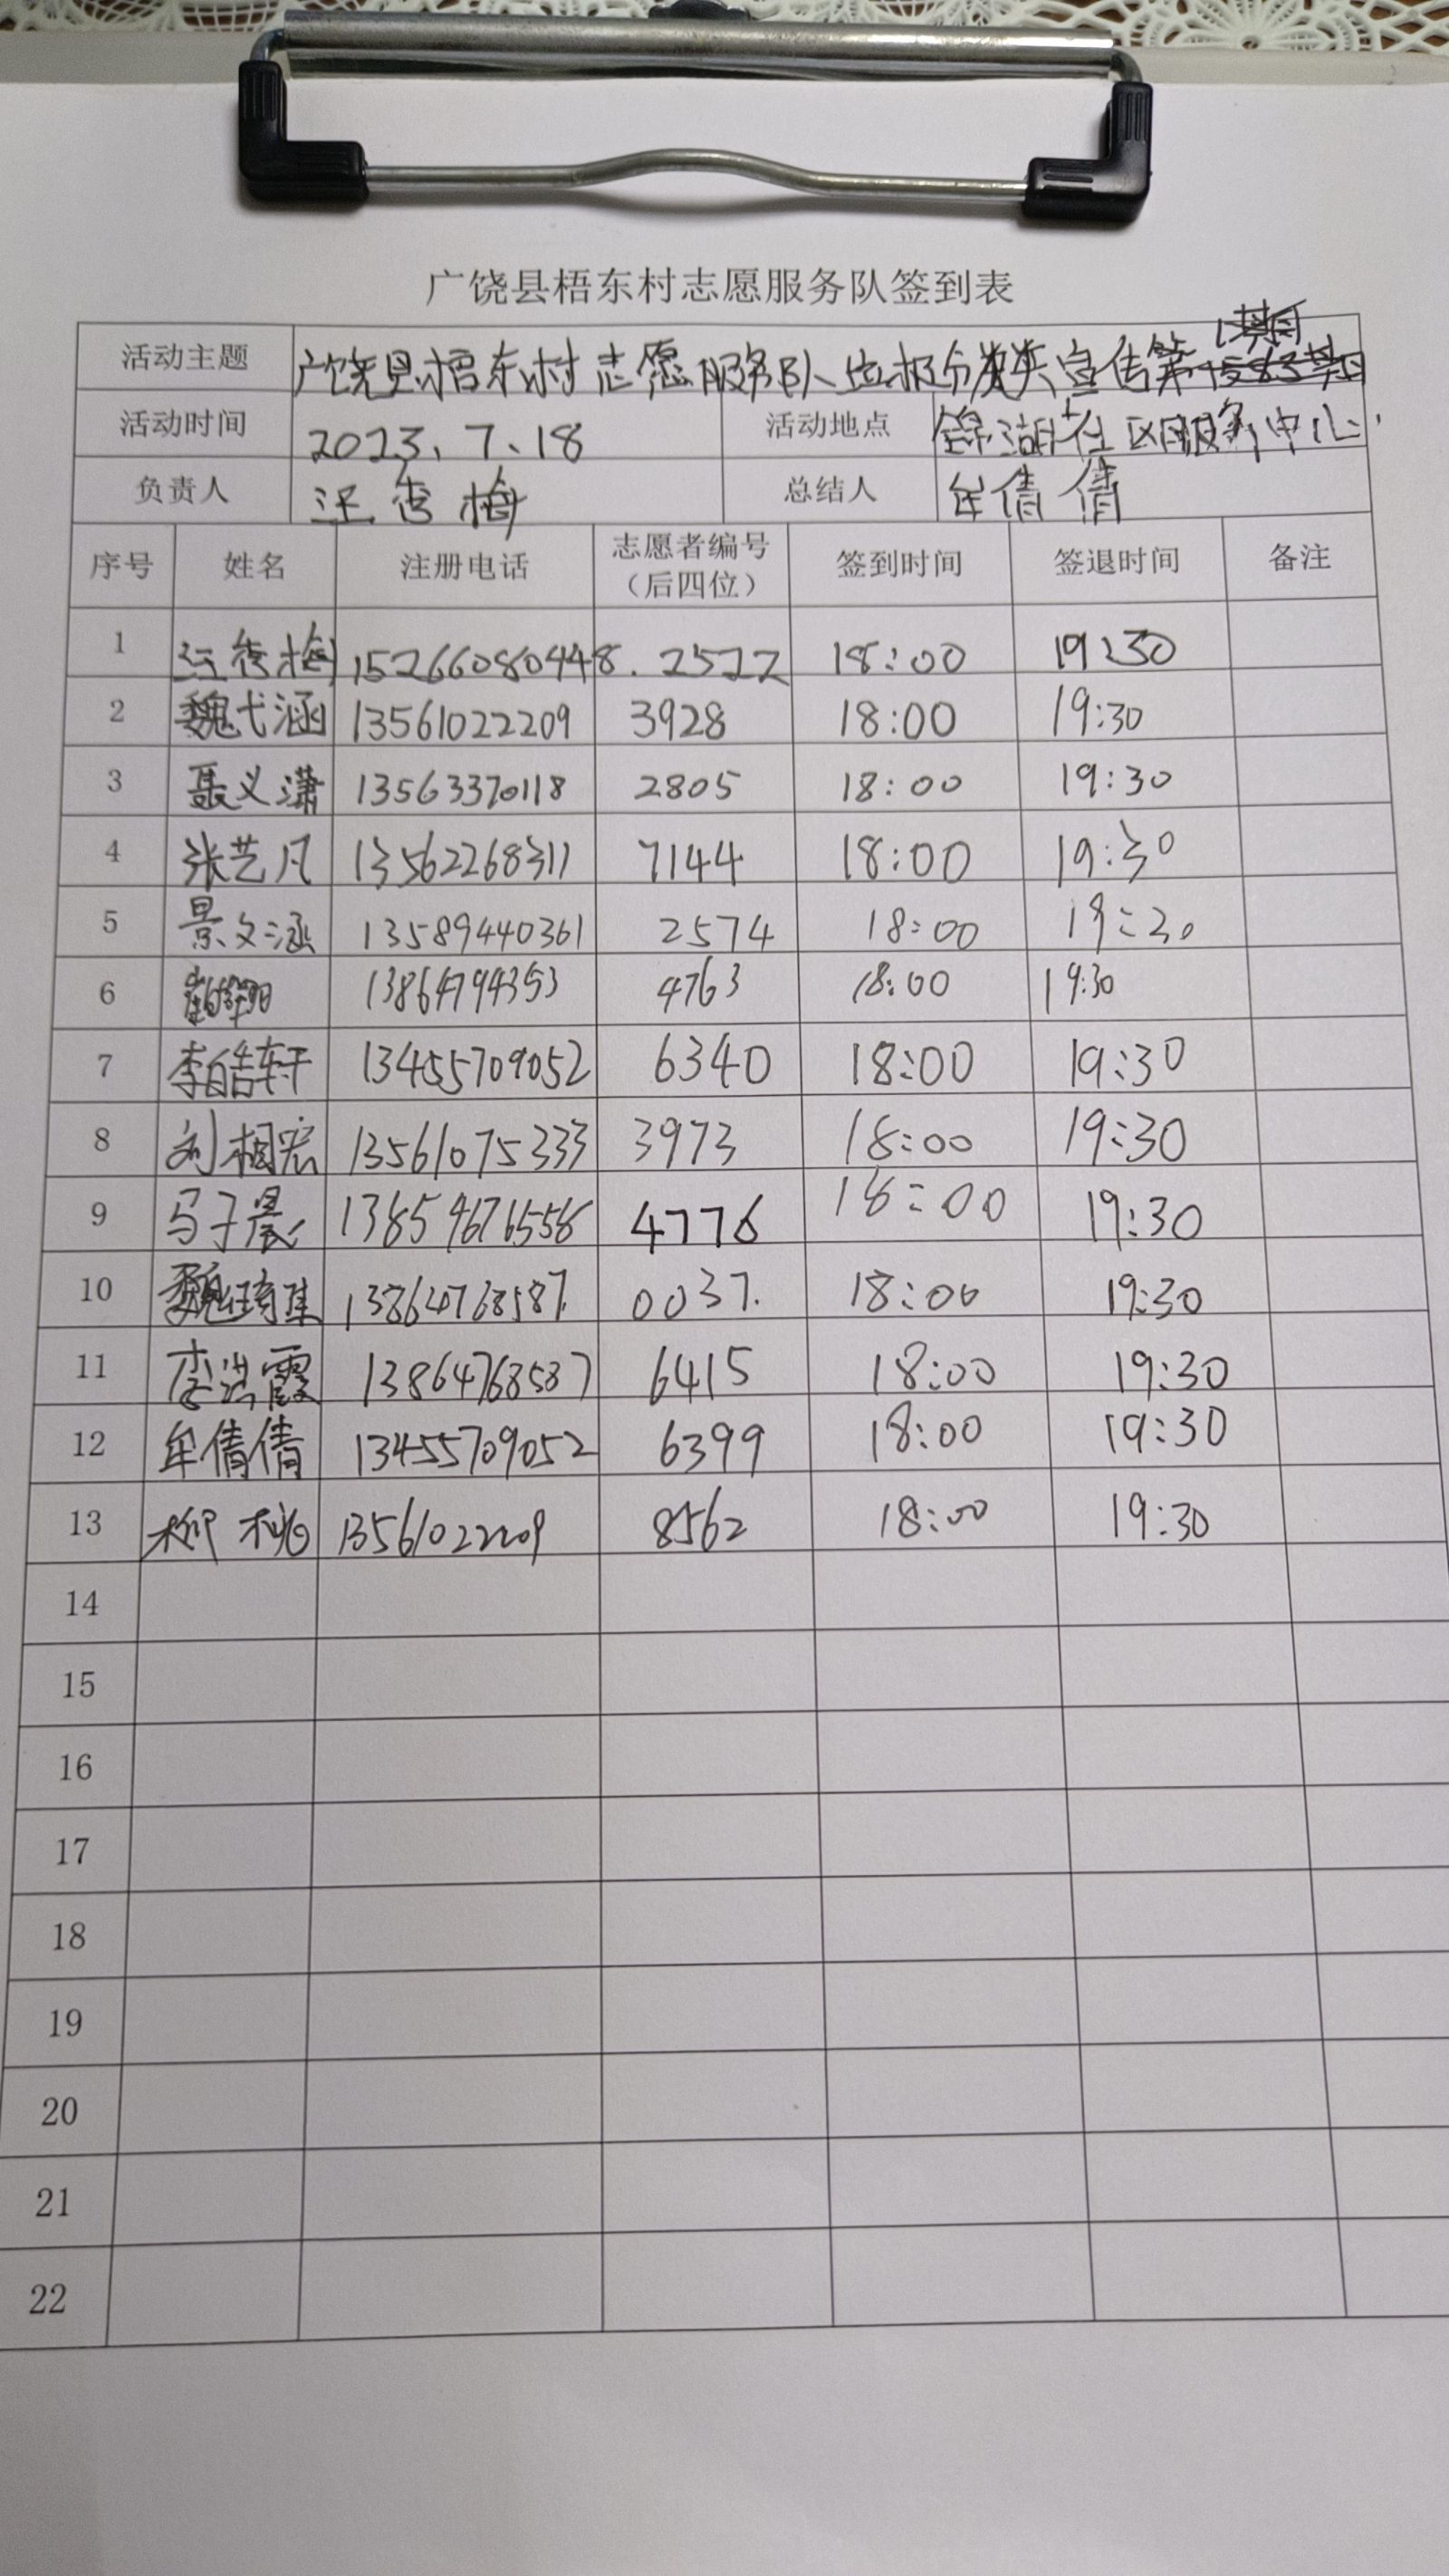 广饶县梧东村志愿服务队签到表
活动主题 广饶县梧东村志愿服务队垃圾分类宣传第
活动时间 2023、7、18 活动地点 锦湖社区服务中心
负责人 汪秀梅 总结人 牟倩倩
序号 姓名 注册电话 志愿者编号 签到时间 签退时间 备注
（后四位）
1 汪秀梅 15266080448. 2522 18:00 19:30
2 魏弋涵 13561022209 3928 18:00 19:30
3 聂义潇 13563370118 2805 18:00 19:30
4 张艺凡 13562268311 7144 18:00 19:30
5 景文涵 13589440361 2574 18:00 19:30
6 13864794353 4763 18:00 19:30
7 李皓轩 13455709052 6340 18:00 19:30
8 刘相宏 13561075333 3973 18:00 19:30
9 马子晨 4776 18:00 19:30
10 魏 13864768587. 0037. 18:00 19:30
11 李洪霞 13864768587 6415 18:00 19:30
12 牟倩倩 13455709052 6399 18:00 19:30
13 柳桃 13561022209 8562 18:00 19:30
14
15
16
17
18
19
20
21
22